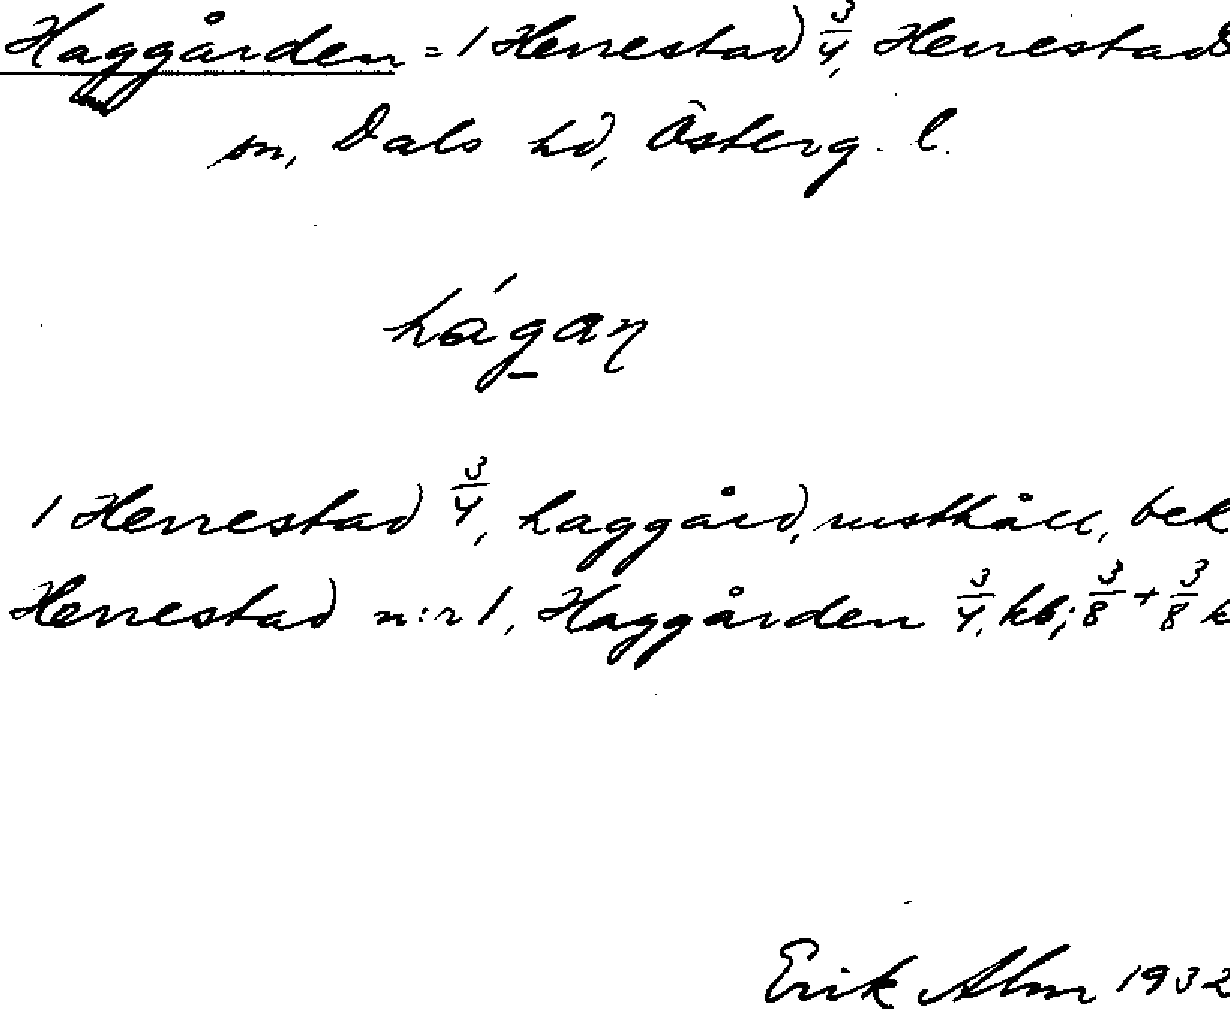 Haggården = 1 Herrestad 3/4, Herrestads
sn, Dals hd, Österg. l.
hágaɳ
1 Herrestad 3/4, haggård, rusthåll, bek
Herrestad n:r 1, Haggården 3/4, kb; 3/8 + 3/8 k
Erik Alm 1932